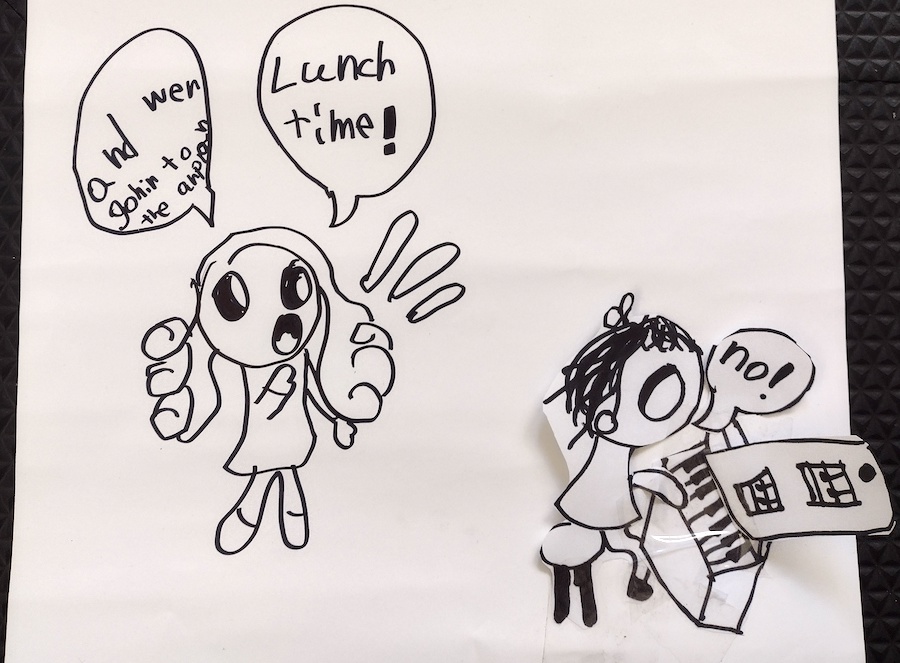 and wen
gohin to
the
Lunch
time!
no!